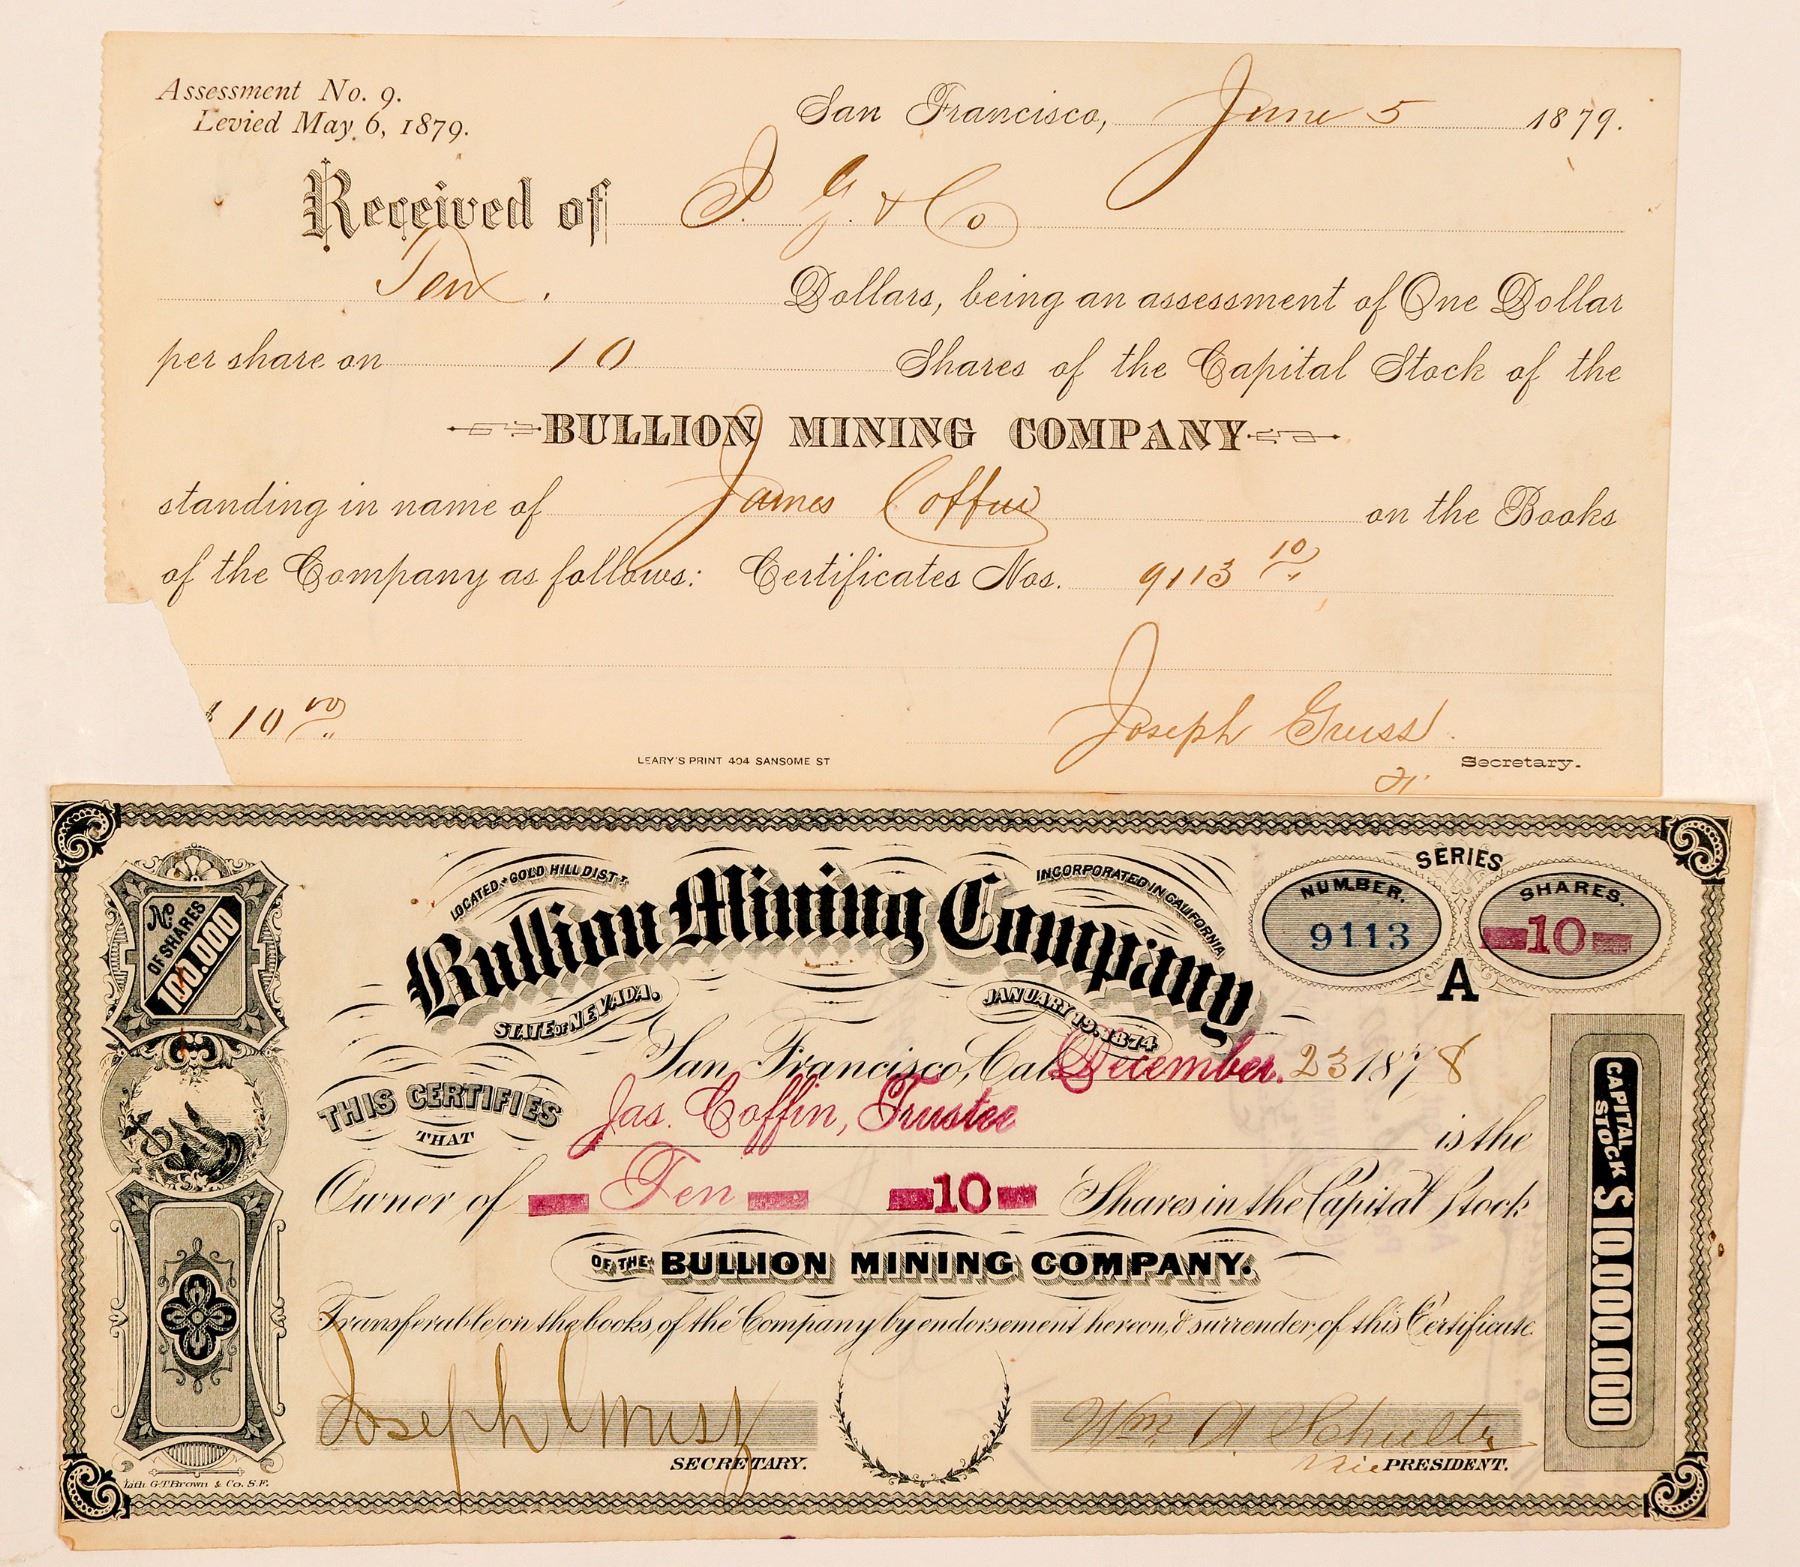 Assessment No. 9.
Levied May 6, 1879.
San Francisco, June 5 1879.
Received of J. G. & Co
Ten. Dollars, being an assessment of One Dollar
per share on 10 Shares of the Capital Stock of the
BULLION MINING COMPANY
standing in name of James Coffin on the Books
of the Company as follows: Certificates Nos. 9113 10/
$ 10 00
Joseph Gruss.
LEARY'S PRINT 404 SANSOME ST
Secretary.
SERIES
LOCATED GOLD HILL DIST.
INCORPORATED IN CALIFORNIA
NUMBER.
SHARES.
No. OF SHARES 100.000
Bullion Mining Company
9113
10
A
STATE OF NEVADA.
JANUARY 19. 1874
San Francisco, Cal. December. 23 1878
THIS CERTIFIES THAT
Jas. Coffin, Trustee is the
Owner of Ten 10 Shares in the Capital Stock
OF THE BULLION MINING COMPANY.
CAPITAL STOCK $10.000.000
Transferable on the books of the Company by endorsement hereon, & surrender of this Certificate.
Joseph Gruss
SECRETARY.
Wm. A. Schultz
Vice PRESIDENT.
Lith. G.T. Brown & Co. S.F.